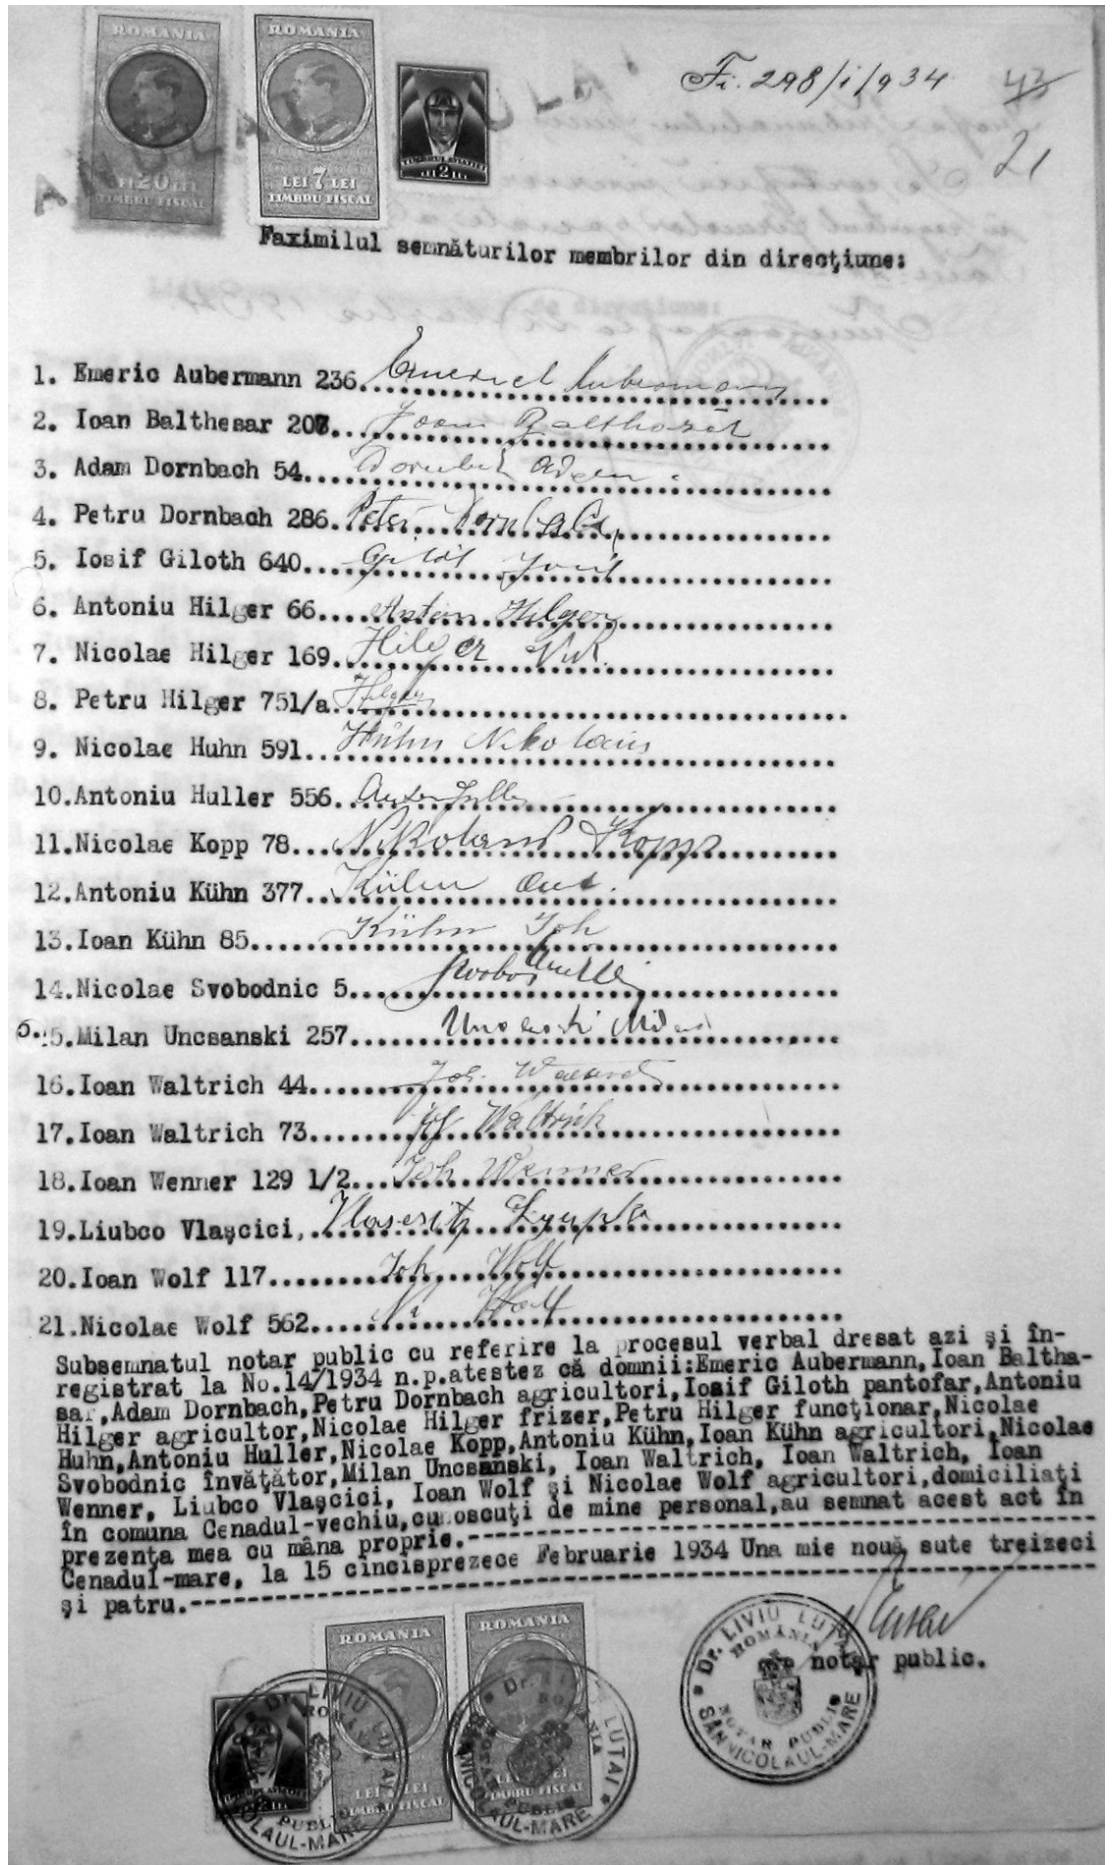 ROMANIA ROMANIA
Fi. 298/i/934
21
LEI 20 LEI LEI 7 LEI LEI 2 LEI
TIMBRU FISCAL TIMBRU FISCAL
ANULAT
Faximilul semnăturilor membrilor din direcţiune:
1. Emeric Aubermann 236. Emerich Aubermann
2. Ioan Balthesar 207... Joan Balthazár
3. Adam Dornbach 54.... Adam
4. Petru Dornbach 286. Peter Dornbach
5. Iosif Giloth 640...
6. Antoniu Hilger 66.... Anton Hilger
7. Nicolae Hilger 169. Hilger Nik.
8. Petru Hilger 751/a. Hilger
9. Nicolae Huhn 591... Huhn Nikolaus
10.Antoniu Huller 556.
11.Nicolae Kopp 78.... Nikolaus Kopp
12.Antoniu Kühn 377... Kühn Ant.
13.Ioan Kühn 85...... Kühn Joh
14.Nicolae Svobodnic 5....
5.Milan Uncsanski 257.... Milan
16.Ioan Waltrich 44....... Joh.
17.Ioan Waltrich 73....... Waltrich
18.Ioan Wenner 129 1/2... Joh Wenner
19.Liubco Vlaşcici,.
20.Ioan Wolf 117........ Joh Wolf
21.Nicolae Wolf 562..... Ni Wolf
Subsemnatul notar public cu referire la procesul verbal dresat azi şi în-
registrat la No.14/1934 n.p.atestez că domnii:Emeric Aubermann,Ioan Baltha-
sar,Adam Dornbach,Petru Dornbach agricultori,Iosif Giloth pantofar,Antoniu
Hilger agricultor,Nicolae Hilger frizer,Petru Hilger funcţionar,Nicolae
Huhn,Antoniu Huller,Nicolae Kopp,Antoniu Kühn,Ioan Kühn agricultori,Nicolae
Svobodnic învăţător,Milan Uncsanski, Ioan Waltrich, Ioan Waltrich, Ioan
Wenner, Liubco Vlaşcici, Ioan Wolf şi Nicolae Wolf agricultori,domiciliaţi
în comuna Cenadul-vechiu,cunoscuţi de mine personal,au semnat acest act în
prezenţa mea cu mâna proprie.
Cenadul-mare, la 15 cincisprezece Februarie 1934 Una mie nouă sute treizeci
şi patru.
notar public.
ROMANIA ROMANIA
TIMBRU FISCAL TIMBRU FISCAL
Dr. LIVIU LUTAI
ROMÂNIA
NOTAR PUBLIC
SÂNNICOLAUL-MARE